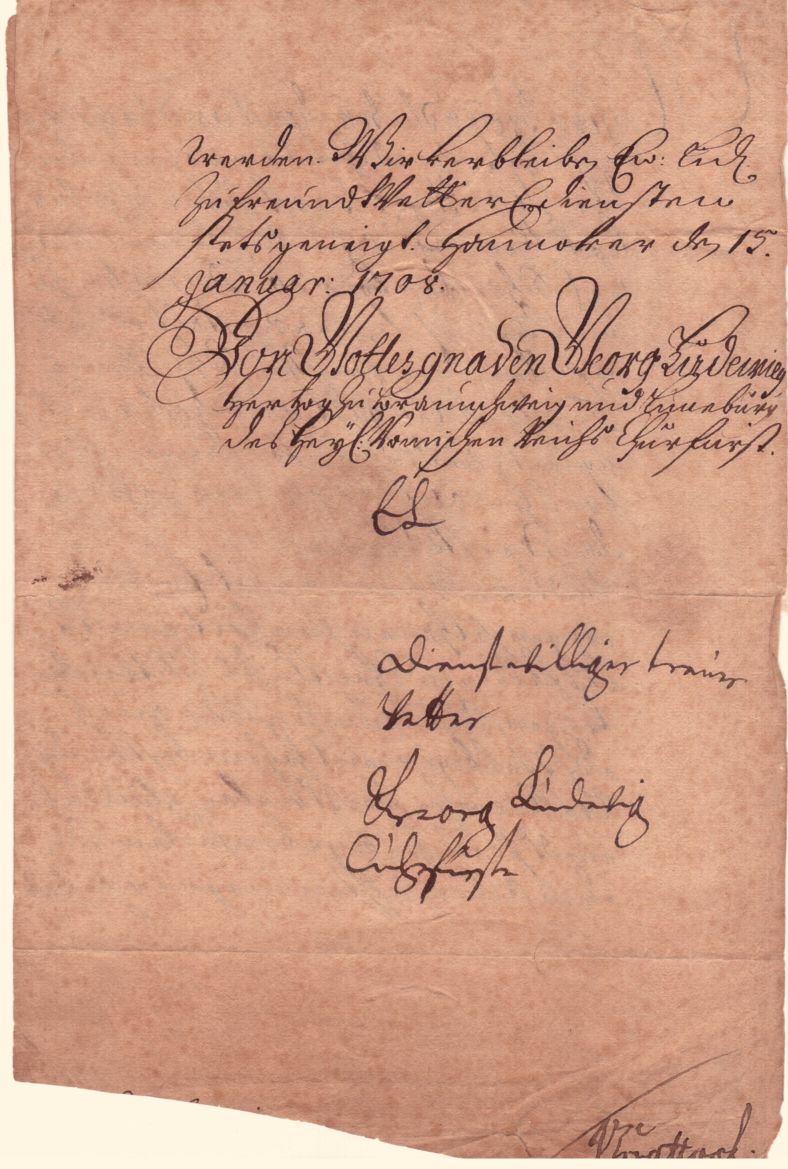 werden. Wir verbleiben Ew: Lbd.
zu freundVetterl. diensten
stets geneigt. Hannover den 15.
januar: 1708.
Von Gottes gnaden Georg Ludewieg
Hertzog zu Braunschweig und Lüneburg
des Heyl: Römischen Reichs Churfürst.
EL
Dienstwilliger treuer
Vetter
Georg Ludewig
Churfürst